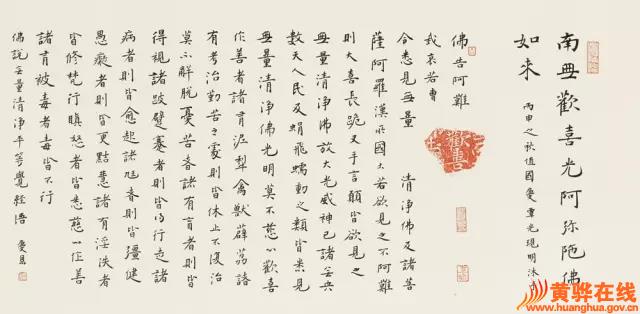 南無歡喜光阿弥陁佛
如来
丙申之秋值國慶重光現明沐
佛告阿難
我哀若曹
令悉見無量
清淨佛及諸菩
薩阿羅漢所國土若欲見之不阿難
則大喜長跪叉手言願皆欲見之
無量清淨佛放大光威神已諸無央
數天人民及蜎飛蠕動之類皆悉見
無量清淨佛光明莫不慈心歡喜
作善者諸有泥犁禽獸薜荔諸
有考治勤苦之處則皆休止不復治
莫不解脫憂苦者諸有盲者則皆
得視諸跛躄蹇者則皆得行走諸
病者則皆愈起諸尪者則皆彊健
愚癡者則皆更黠慧諸有淫泆者
皆修梵行瞋怒者皆悉慈心作善
諸有被毒者毒皆不行
佛説無量清淨平等覺經語
歡喜
黄骅在线
www.huanghua.gov.cn